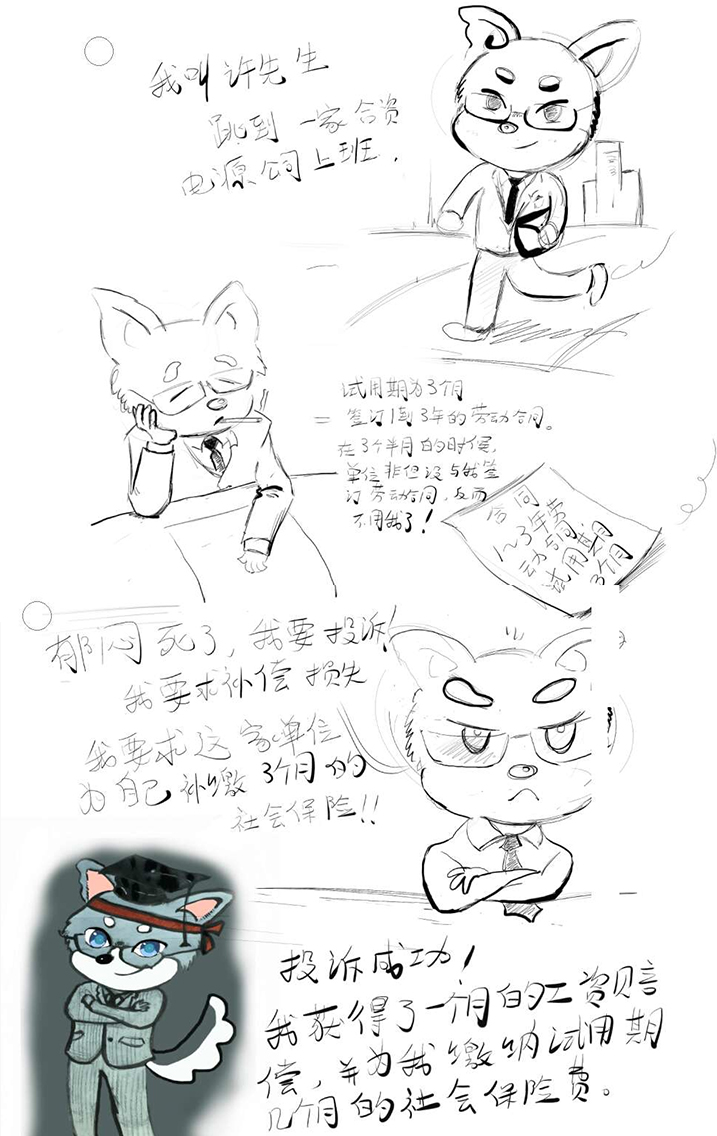 我叫许先生
跳到一家合资
电源公司上班.
试用期为3个月
签订1到3年的劳动合同。
在3个半月的时候,
单位非但没与我签
订劳动合同,反而
不用我了!
合同
1~3年劳
动合同
试用期
3个月
郁闷死了,我要投诉!
我要求补偿损失
我要求这家单位
为自己补缴3个月的
社会保险!!
投诉成功!
我获得了一个月的工资赔
偿,并为我缴纳试用期
几个月的社会保险费。